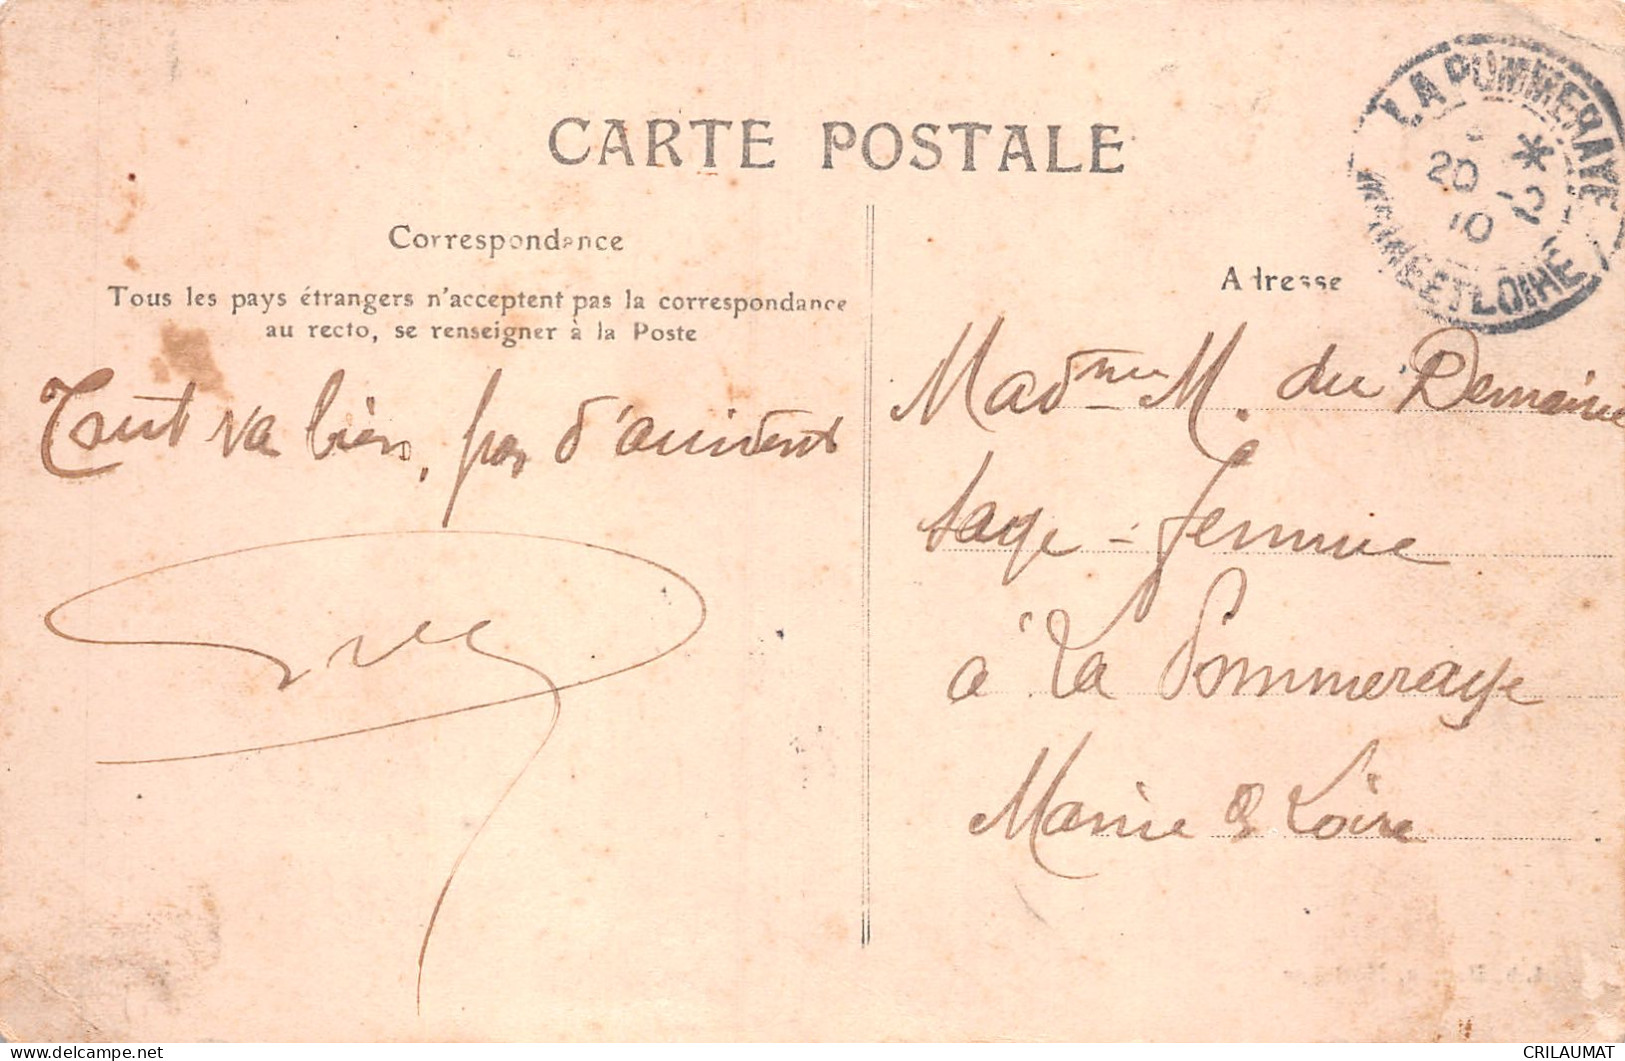 CARTE POSTALE
Correspondance
Tous les pays étrangers n'acceptent pas la correspondance
au recto, se renseigner à la Poste
Tout va bien, pas d'accident
Adresse
LA POMMERAYE
20 -2
10
MAINE ET LOIRE
Madme M. du Demaine
sage-femme
à La Pommeraye
Maine & Loire
CRILAUMAT